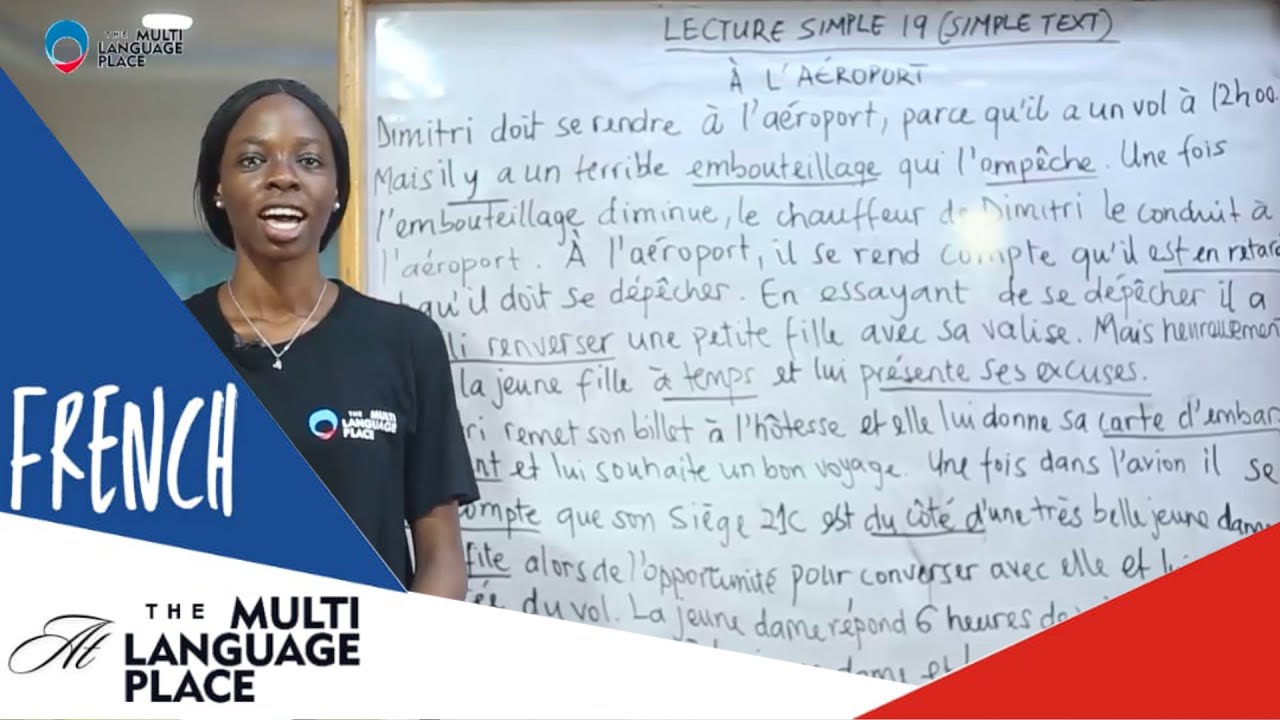 THE MULTI
LANGUAGE
PLACE
LECTURE SIMPLE 19 (SIMPLE TEXT)
À L'AÉROPORT
Dimitri doit se rendre à l'aéroport, parce qu'il a un vol à 12h00.
Mais il y a un terrible embouteillage qui l'empêche. Une fois
l'embouteillage diminue, le chauffeur de Dimitri le conduit à
l'aéroport. À l'aéroport, il se rend compte qu'il est en retard
qu'il doit se dépêcher. En essayant de se dépêcher il a
li renverser une petite fille avec sa valise. Mais heureusement
la jeune fille à temps et lui présente ses excuses.
ri remet son billet à l'hôtesse et elle lui donne sa carte d'embar
nt et lui souhaite un bon voyage. Une fois dans l'avion il se
ompte que son siège 21C est du côté d'une très belle jeune dame
fite alors de l'opportunité pour converser avec elle et
ée du vol. La jeune dame répond 6 heures de
dame et
THE MULTI
LANGUAGE
PLACE
FRENCH
At
THE MULTI
LANGUAGE
PLACE